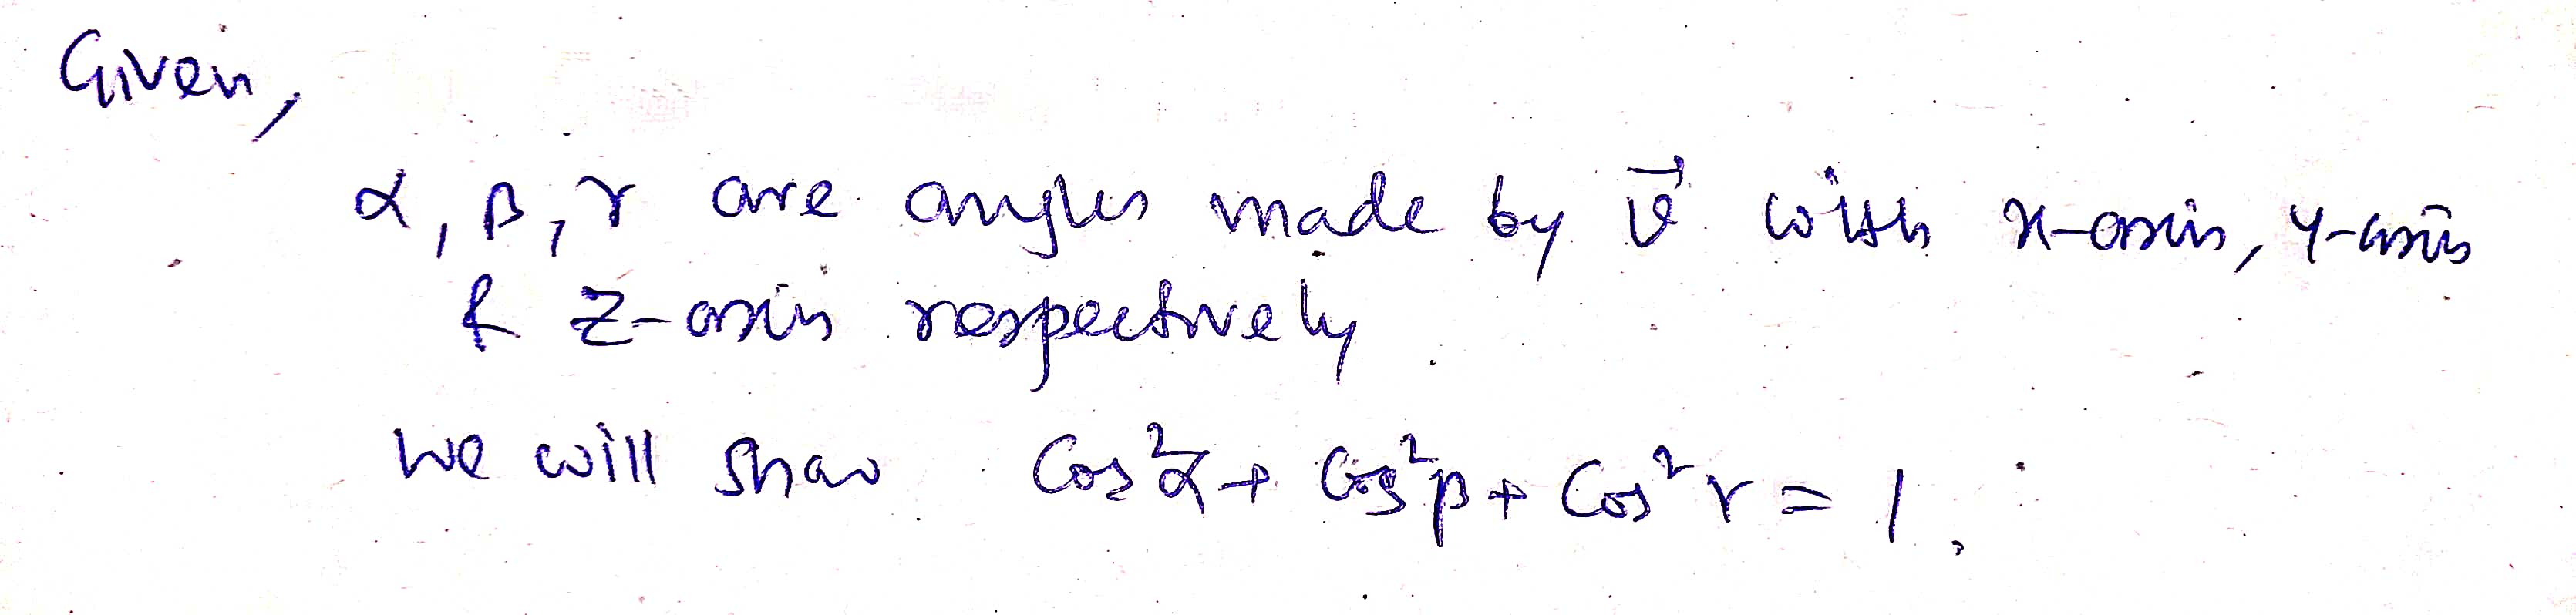 Given,
α, β, γ are angles made by v⃗ with x-axis, y-axis
& z-axis respectively.
We will show cos²α + cos²β + cos²γ = 1.